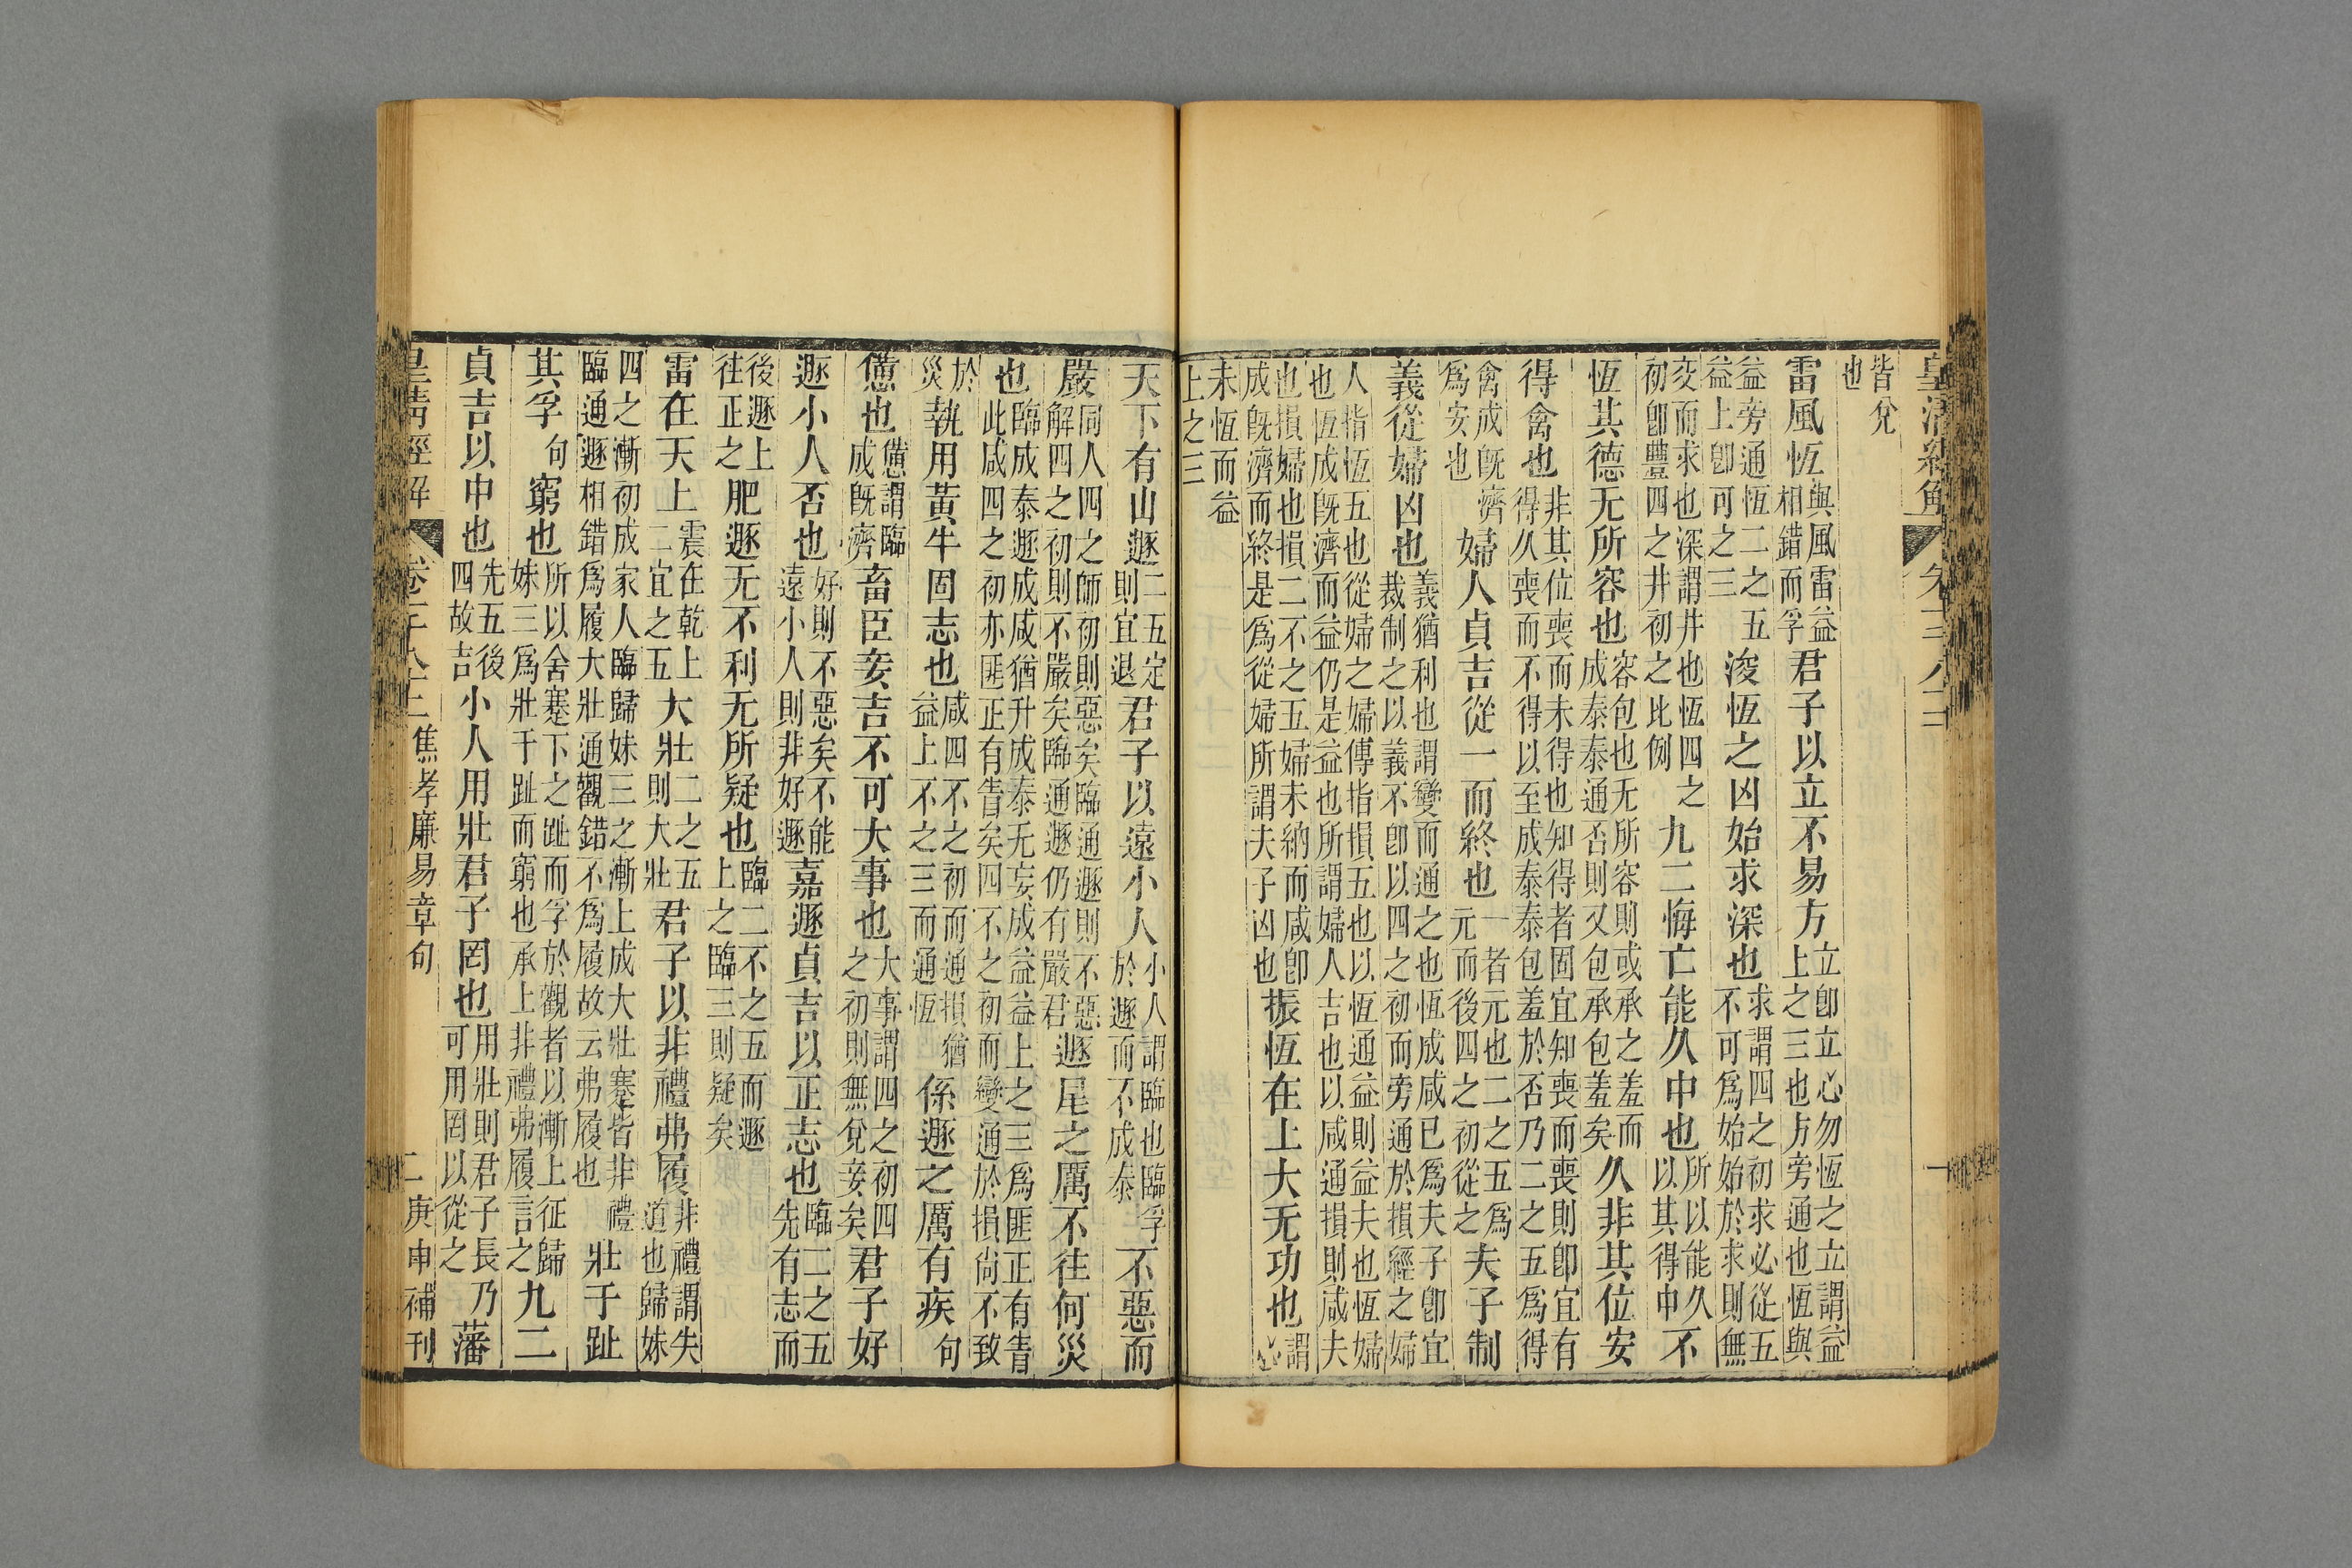 皇清經解
皆兌也
雷風恆與風雷益相錯而孚君子以立不易方立卽立心勿恆之立謂益上之三也方旁通也恆與
益旁通恆二之五益上卽可之三浚恆之凶始求深也求謂四之初求必從五不可爲始始於求則無
交而求也深謂井也恆四之初卽豐四之井初之比例九二悔亡能久中也所以能久以其得中不
恆其德无所容也容包也无所容則或承之羞而成泰泰通否則又包承包羞矣久非其位安
得禽也非其位喪而未得也知得者固宜知喪而喪則卽宜有得久喪而不得以至成泰泰包羞於否乃二之五爲得
禽成旣濟爲安也婦人貞吉從一而終也一者元也二之五爲元而後四之初從之夫子制
義從婦凶也義猶利也謂變而通之也恆成咸已爲夫子卽宜裁制之以義不卽以四之初而旁通於損經之婦
人指恆五也從婦之婦傳指損五也以恆通益則益夫也恆婦也恆成旣濟而益仍是益也所謂婦人吉也以咸通損則咸夫
也損婦也損二不之五婦未納而咸卽成旣濟而終是爲從婦所謂夫子凶也振恆在上大无功也謂必
未恆而益上之三
天下有山遯二五定則宜退君子以遠小人小人謂臨也臨孚於遯而不成泰不惡而
嚴同人四之師初則惡矣臨通遯則不惡解四之初則不嚴矣臨通遯仍有嚴君遯尾之厲不往何災
也臨成泰遯成咸猶升成泰无妄成益益上之三爲匪正有眚此咸四之初亦匪正有眚矣四不之初而變通於損尙不致
於災執用黃牛固志也咸四不之初而通損猶益上不之三而通恆係遯之厲有疾句
憊也憊謂臨成旣濟畜臣妾吉不可大事也大事謂四之初四之初則無兌妾矣君子好
遯小人否也好則不惡矣不能遠小人則非好遯嘉遯貞吉以正志也臨二之五先有志而
後遯上往正之肥遯无不利无所疑也臨二不之五而遯上之臨三則疑矣
雷在天上震在乾上二宜之五大壯二之五則大壯君子以非禮弗履非禮謂失道也歸妹
四之漸初成家人臨歸妹三之漸上成大壯蹇皆非禮臨通遯相錯爲履大壯通觀錯不爲履故云弗履也壯于趾
其孚句窮也所以舍蹇下之趾而孚於觀者以漸上征歸妹三爲壯于趾而窮也承上非禮弗履言之九二
貞吉以中也先五後四故吉小人用壯君子罔也用壯則君子長乃可用罔以從之藩
皇清經解 焦孝廉易章句 二 庚申補刊